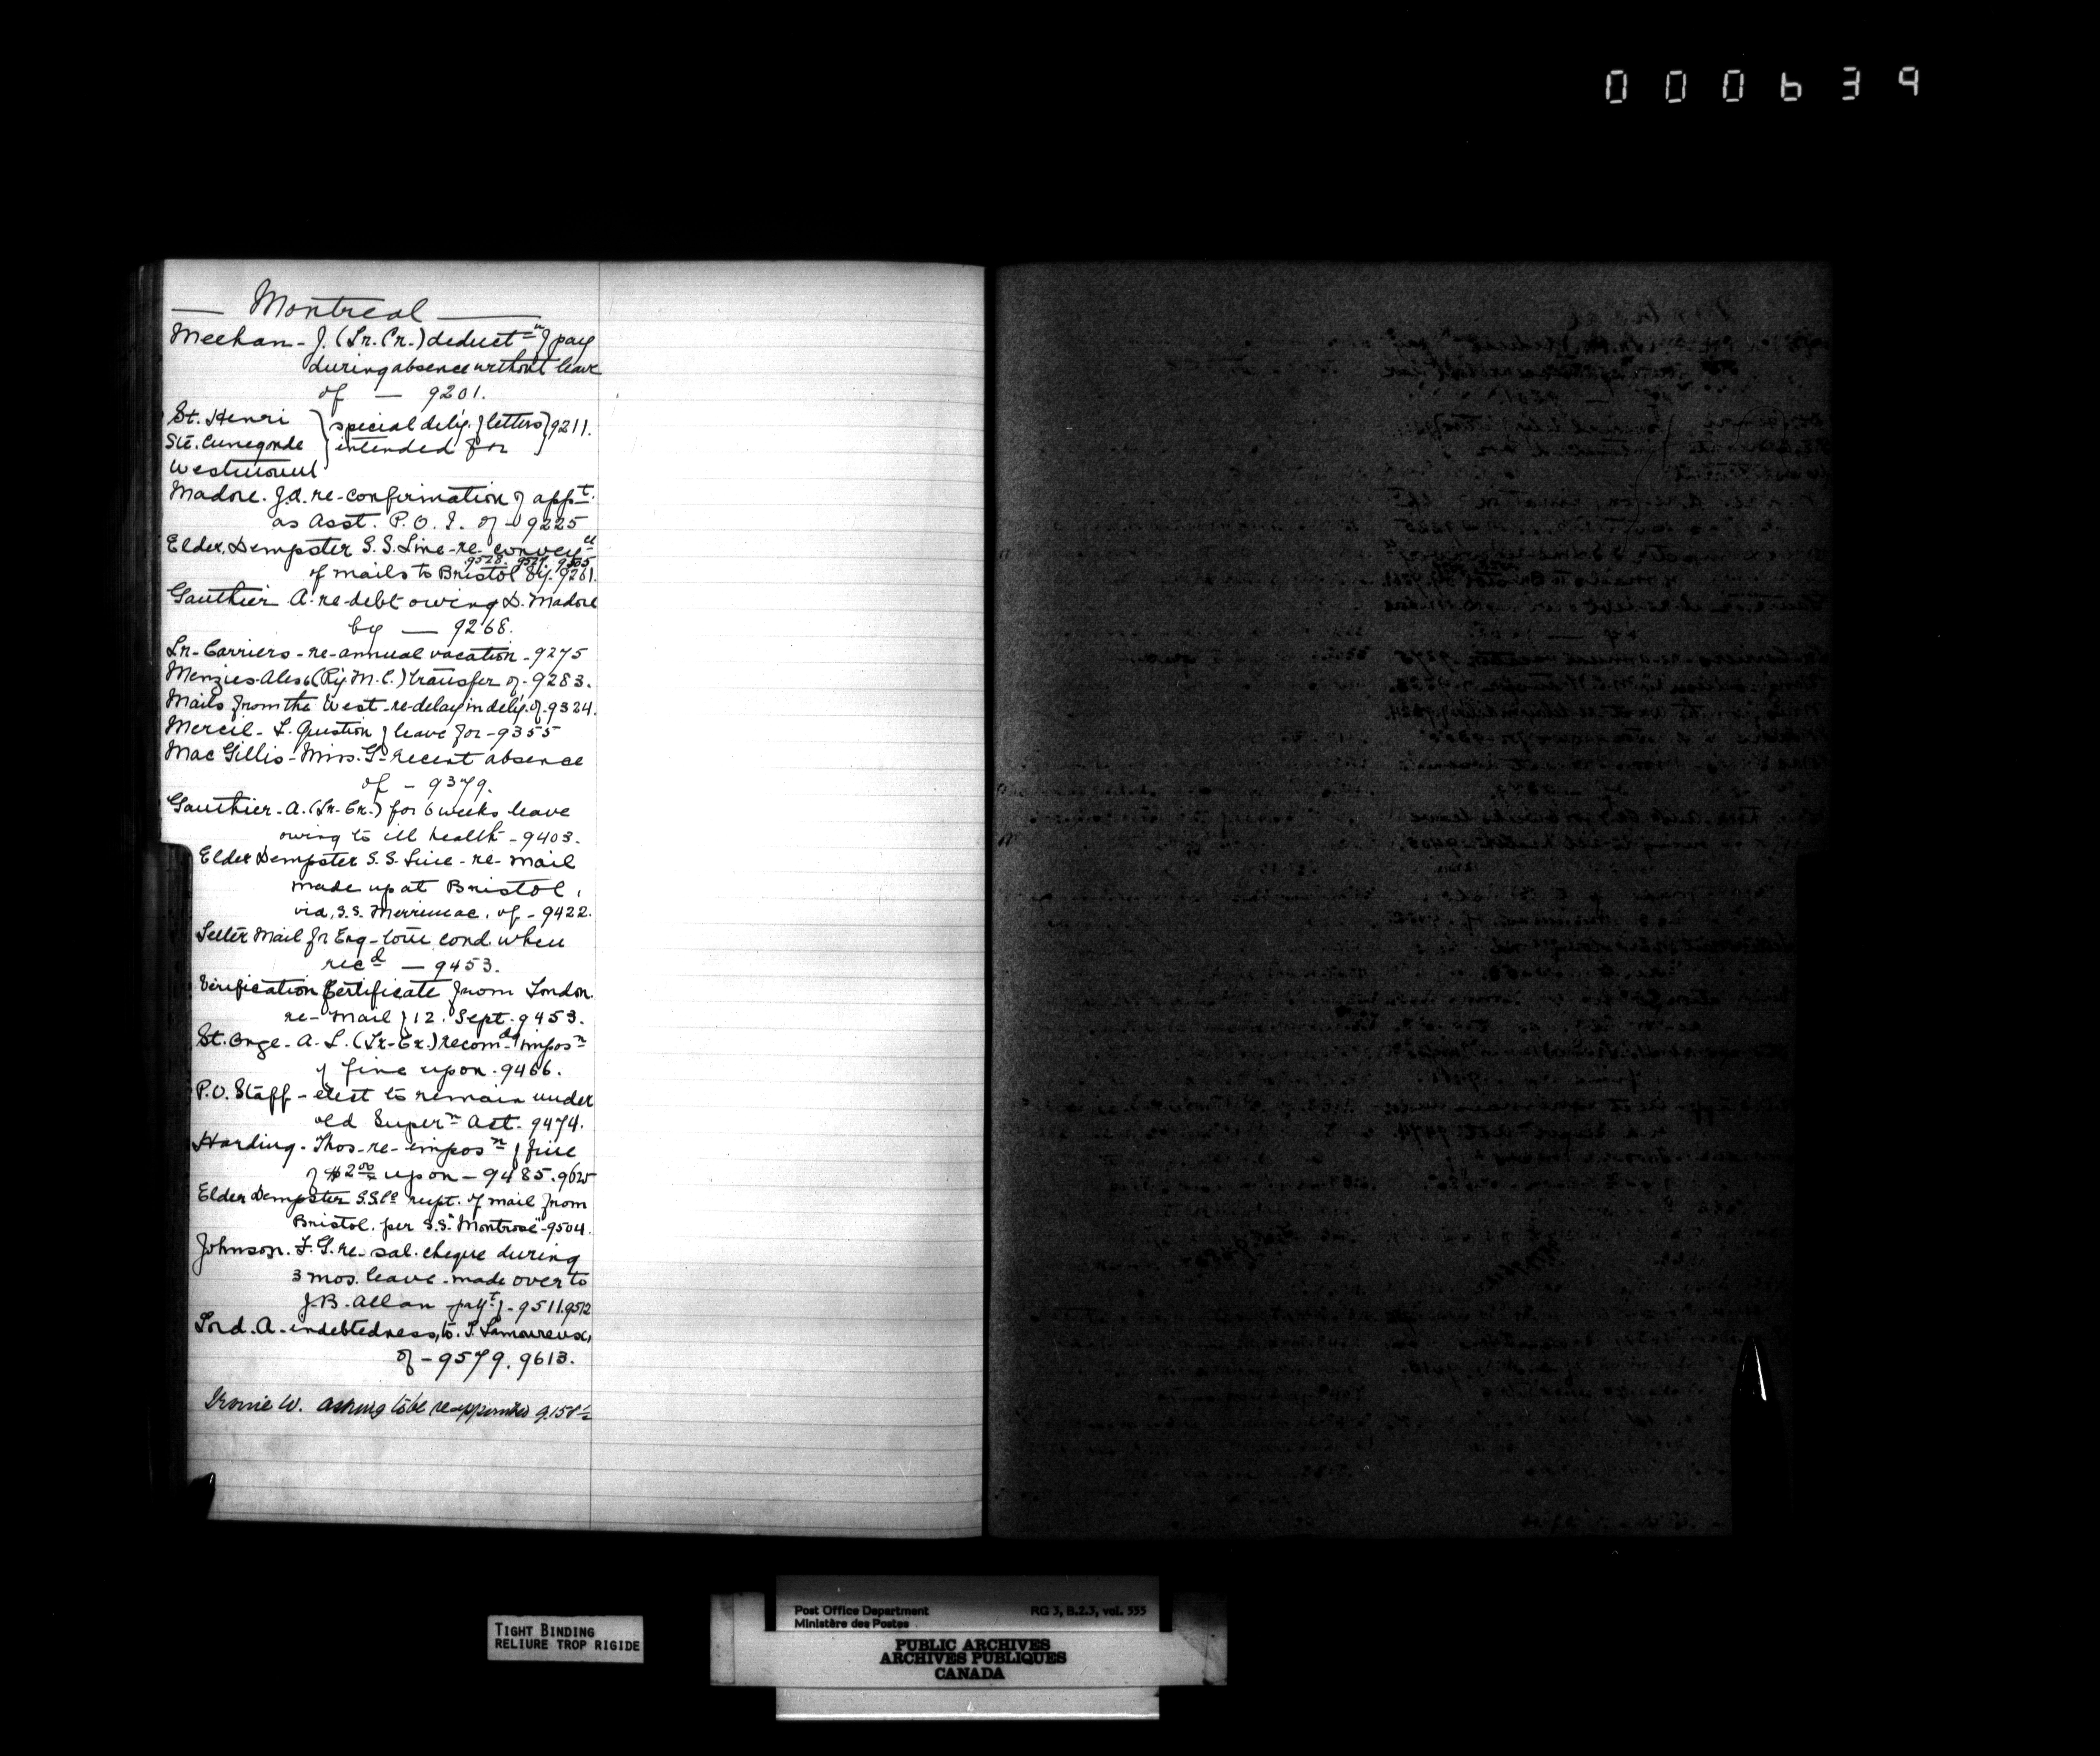 000639
— Montreal —
Meehan - J. (Lr. Cr.) deduct=n of pay
during absence without leave
of — 9201.
St. Henri } special deliy. of letters } 9211.
Ste. Cunegonde } intended for }
Westmount
Madore. J.A. re-confirmation of appt.
as Asst. P.O.I. of - 9225
Elder, Dempster S.S. Line - re- convey=ce
9528. 9529. 9505
of mails to Bristol by. 9261.
Gauthier A. re-debt owing D. Madore
by — 9268.
Lr-Carriers - re-annual vacation - 9275
Menzies-Alex (Ry. M.C.) transfer of - 9283.
Mails from the West - re-delay in deliy. of. 9324.
Merceil - L. Question of leave for - 9355
MacGillis - Miss. G- recent absence
of - 9379.
Gauthier - A. (Lr-Cr.) for 6 weeks leave
owing to ill health - 9403.
Elder Dempster S.S. Line - re- mail
made up at Bristol,
via, S.S. Merrimac, of - 9422.
Letter Mail fr Eng - torn cond. when
recd — 9453.
Verification Certificate from London.
re- Mail of 12. Sept. 9453.
St. Onge - A. L. (Lr-Cr.) recomd impos=n
of fine upon. 9466.
P.O. Staff - elect to remain under
old Super=n Act. 9474.
Harding - Thos - re- impos=n of fine
of $2.00 upon - 9485. 9625
Elder Dempster S.S.Co. recpt. of mail from
Bristol. per S.S. "Montrose" - 9504.
Johnson. F. G. re- sal. cheque during
3 mos. leave - made over to
J.B. Allan payt of - 9511. 9512
Lord. A - indebtedness, to. T. Lamoureux,
of - 9579. 9613.
W. asking to be reappointed
TIGHT BINDING
RELIURE TROP RIGIDE
Post Office Department RG 3, B.2.3, vol. 555
Ministère des Postes
PUBLIC ARCHIVES
ARCHIVES PUBLIQUES
CANADA